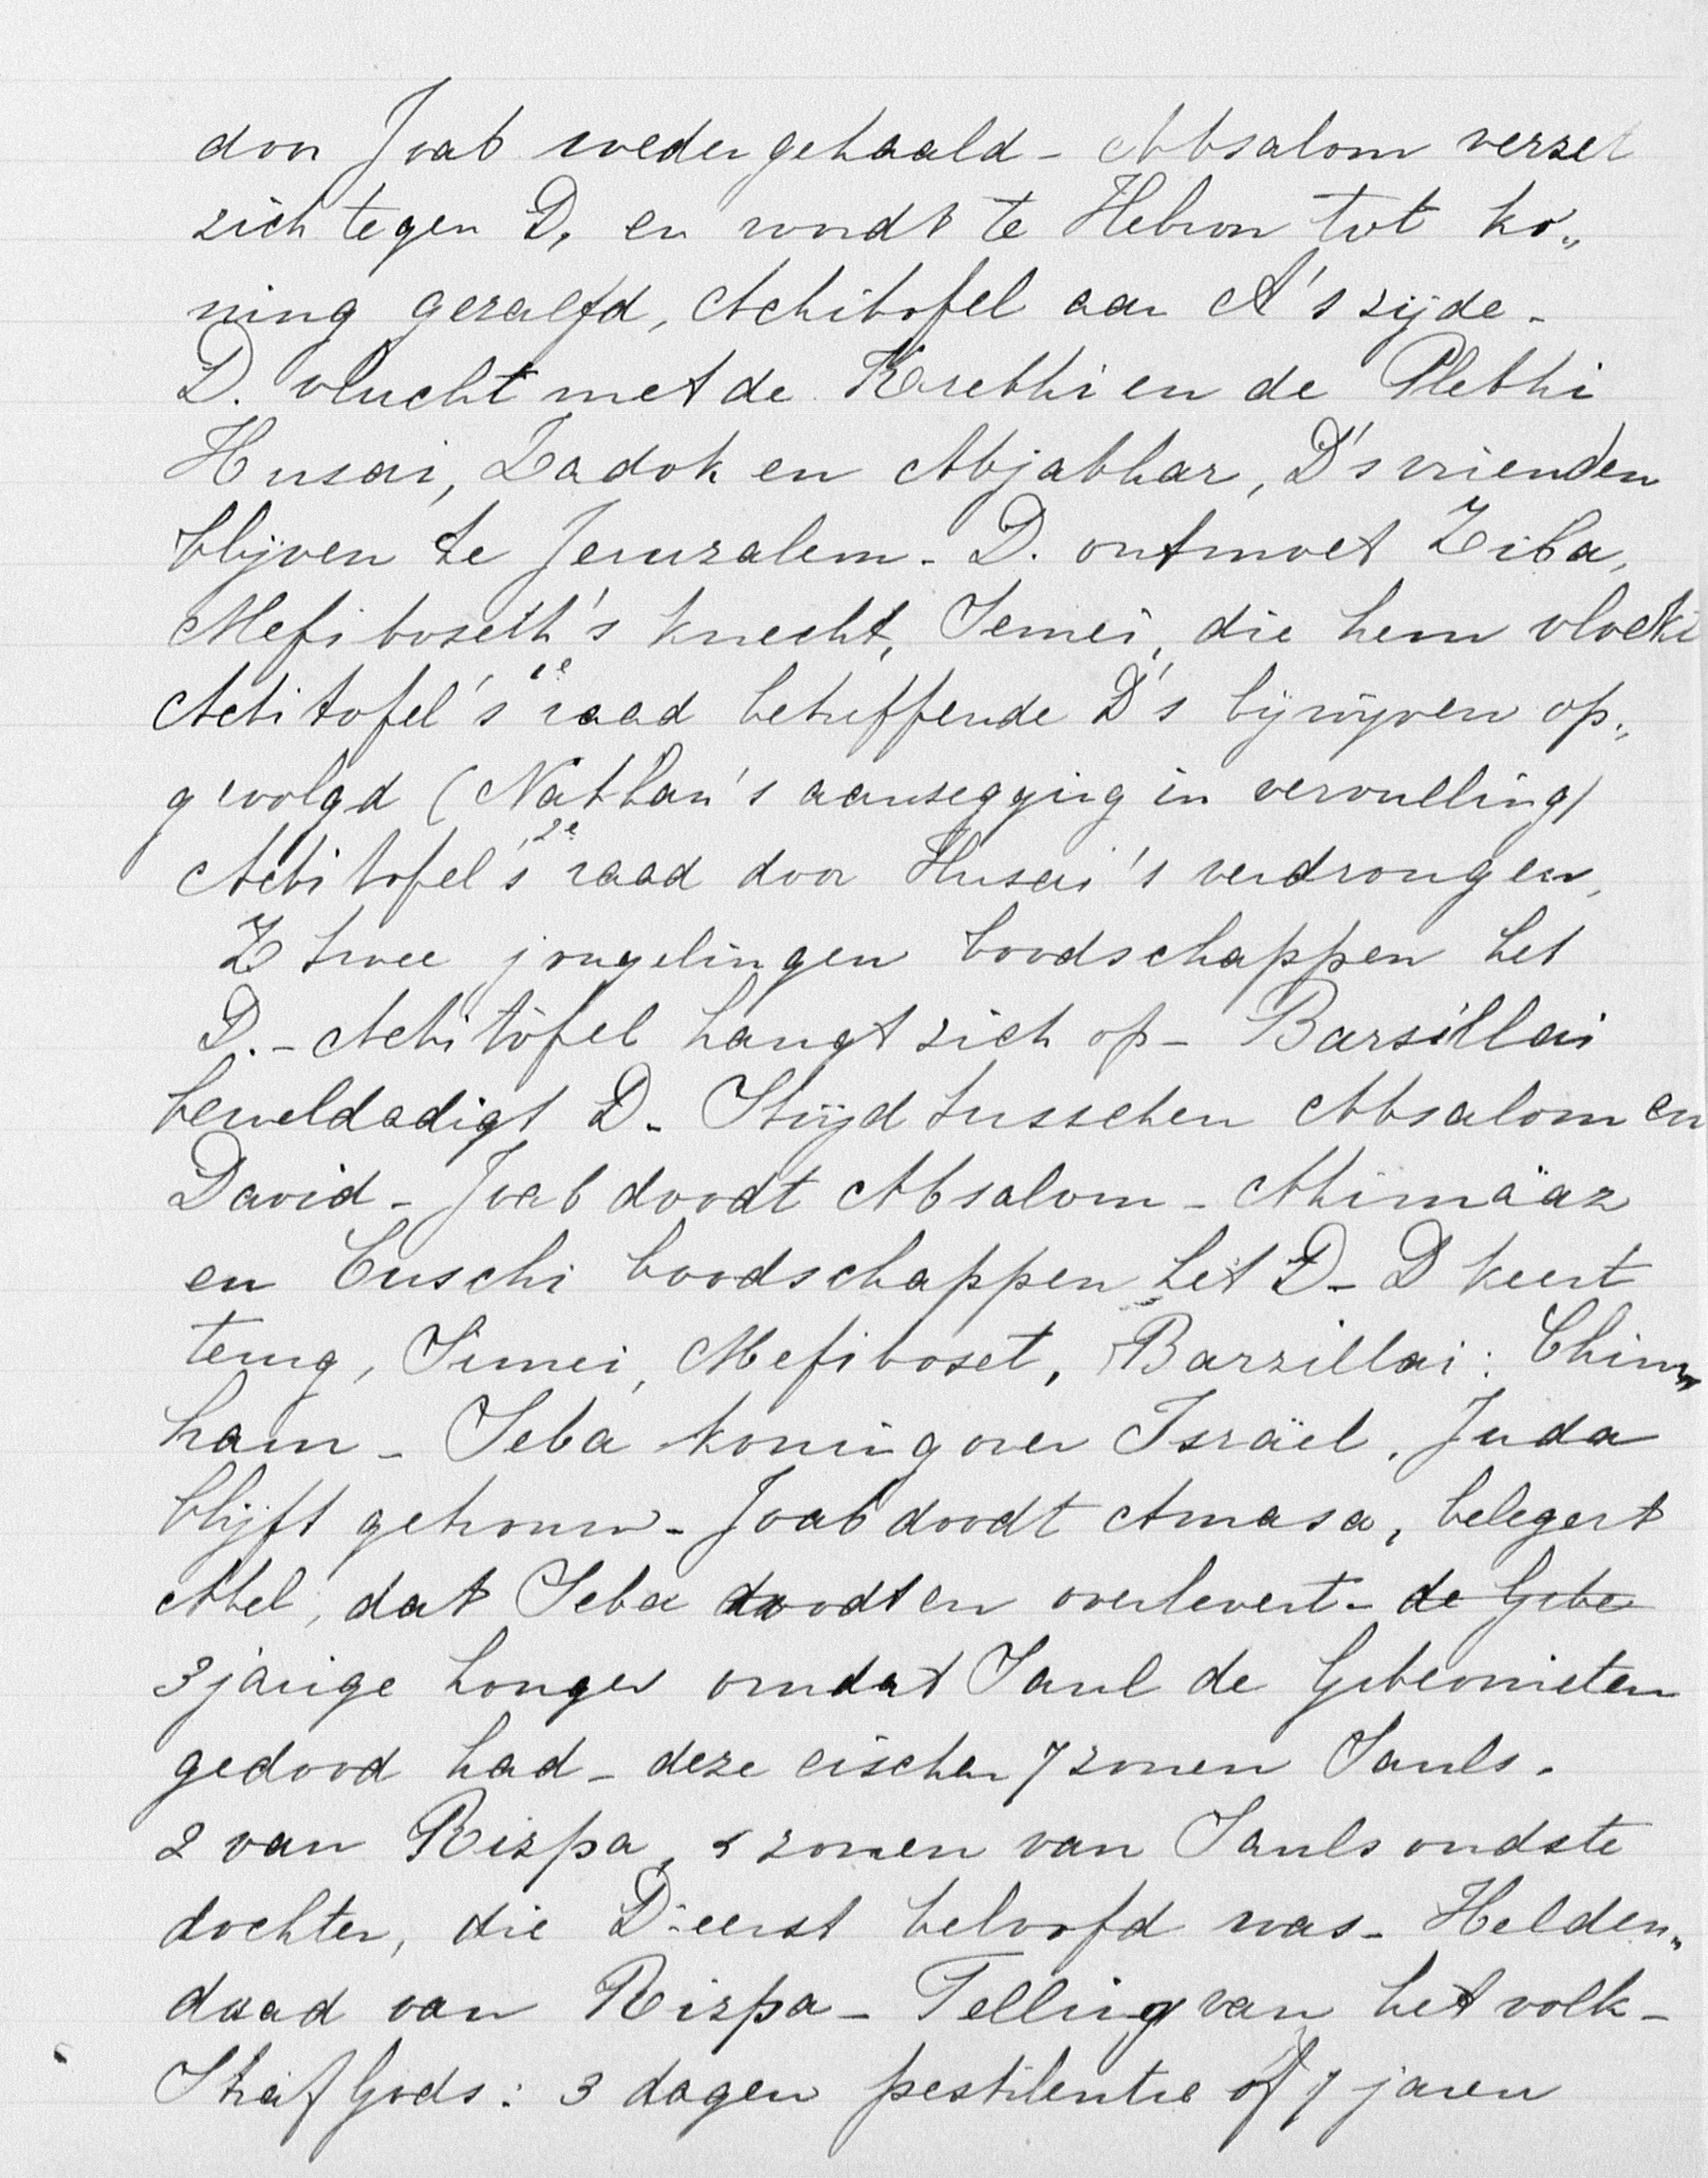 door Joab wedergehaald - Absalom verzet
zich tegen D, en wordt te Hebron tot ko„
ning gezalfd, Achitofel aan A's zijde -
D. vlucht met de Krethi en de Plethi
Husai, Zadok en Abjathar, D's vrienden
blijven te Jeruzalem - D. ontmoet Ziba,
Mefiboseth's knecht, Semeï, die hem vloekt
Achitofel's 1e raad betreffende D's bijwijven op„
gevolgd (Nathan's aanzegging in vervulling)
Achitofel's 2e raad door Husai's verdrongen,
Z twee jongelingen boodschappen het
D. - Achitofel hangt zich op - Barsillai
beweldadigt D - Strijd tusschen Absalom en
David - Joab doodt Absalom - Ahimäaz
en Cuschi boodschappen het D - D keert
terug, Simeï, Mefiboset, Barzillai: Chim„
ham - Seba koning over Israël, Juda
blijft getrouw - Joab doodt Amasa, belegert
Abel, dat Seba doodt en overlevert - de Gibe
3 jarige honger omdat Saul de Gibeonieten
gedood had - deze eischen 7 zonen Sauls.
2 van Rizpa, 5 zonen van Sauls oudste
dochter, die D eerst beloofd was - Helden„
daad van Rizpa - Telling van het volk -
Straf Gods: 3 dagen pestilentie óf 7 jaren